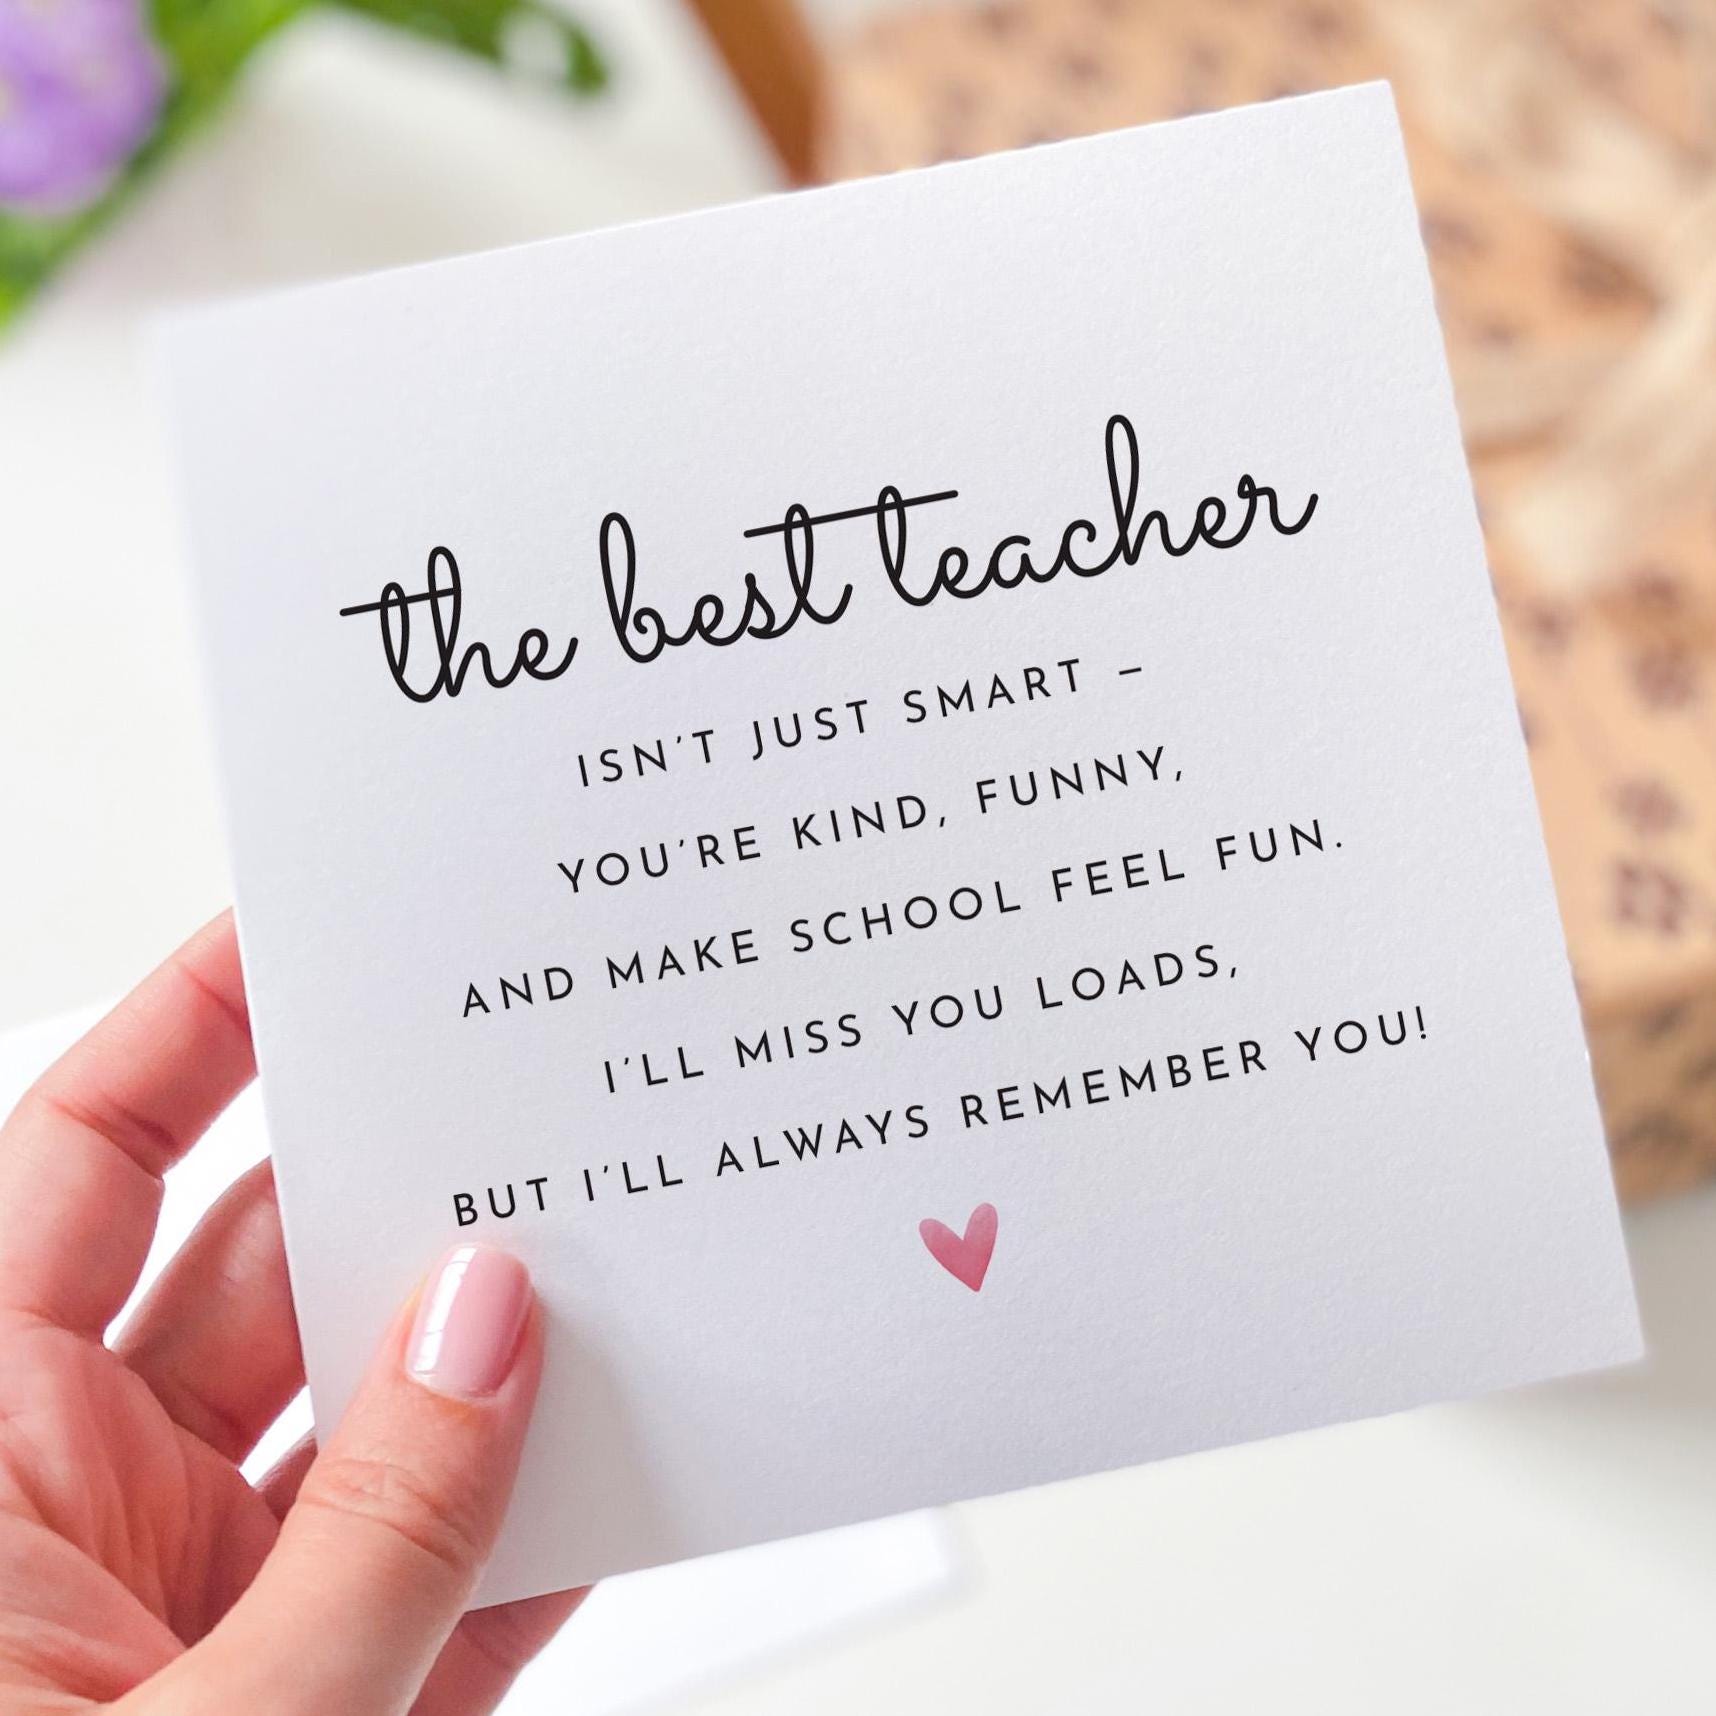 the best teacher
ISN'T JUST SMART –
YOU'RE KIND, FUNNY,
AND MAKE SCHOOL FEEL FUN.
I'LL MISS YOU LOADS,
BUT I'LL ALWAYS REMEMBER YOU!